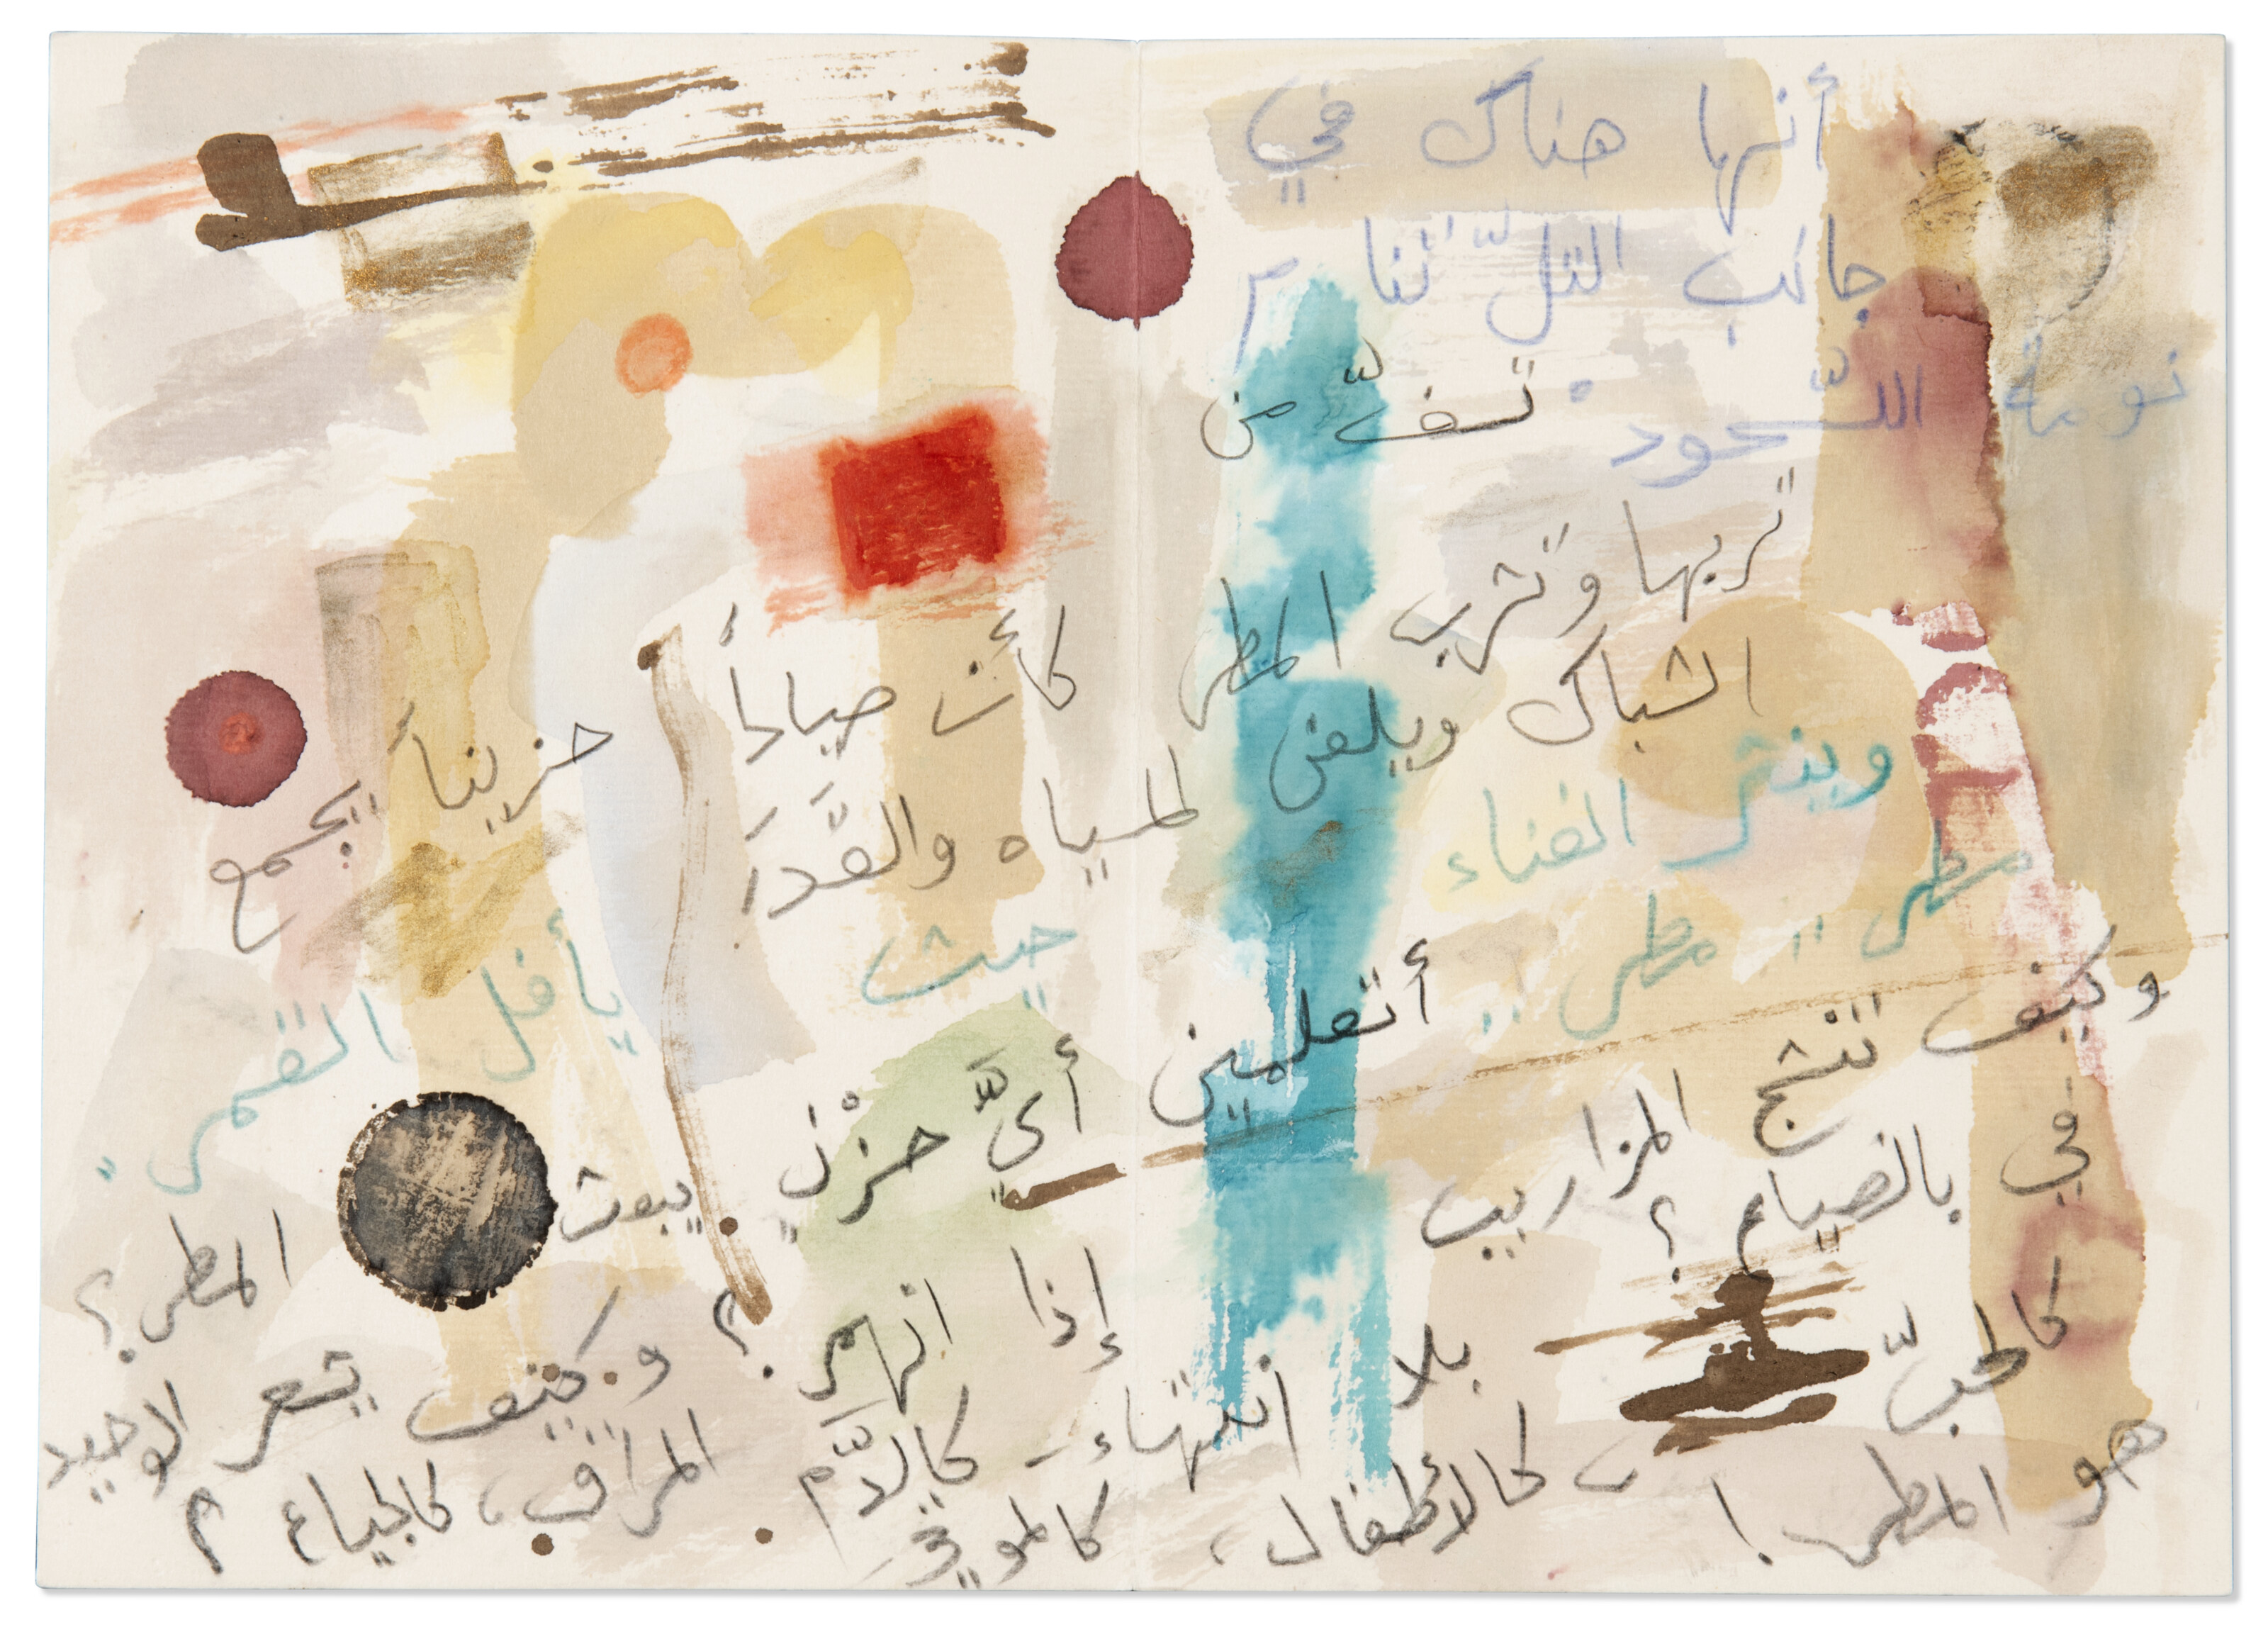 أنها هناك في
جانب التلّ تنام
نومة اللّحود
تسفّ من
تربها وتشرب المطر
كأن صياداً حزيناً يجمع
الشباك ويلعن المياه والقَدَرَ
وينثر الغناء حيث يأفل القمر.
مطر .. مطر ..
أتعلمين أيَّ حزْنٍ يبعث المطر؟
وكيف تنشج المزاريب إذا انهمر؟
وكيف يشعر الوحيد
في بالضياع؟
بلا انتهاء - كالدَّم المراق، كالجياع
كالحبّ، كالأطفال، كالموتى
هو المطر!